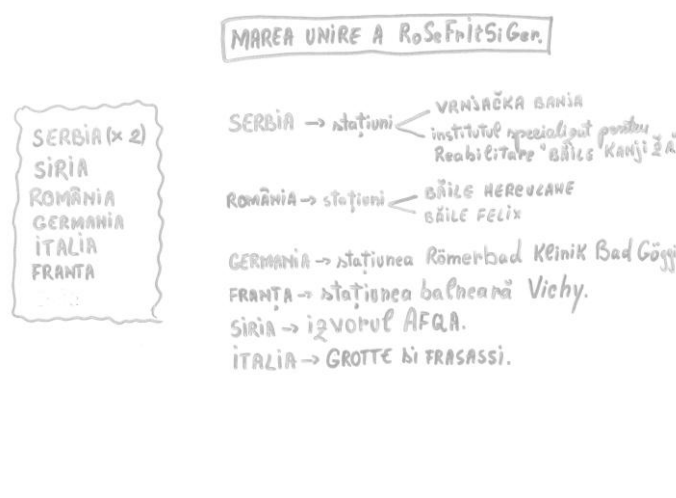 MAREA UNIRE A RoSeFritSiGer.
SERBIA (x 2)
SIRIA
ROMÂNIA
GERMANIA
ITALIA
FRANTA
SERBIA → stațiuni
VRNJAČKA BANJA
institutul specializat pentru
Reabilitare "BĂILE KANJIŽA
ROMÂNIA → stațiuni
BĂILE HERCULANE
BĂILE FELIX
GERMANIA → stațiunea Römerbad Klinik Bad Göggi
FRANȚA → stațiunea balneară Vichy.
SIRIA → izvorul AFQA.
ITALIA → GROTTE DI FRASASSI.